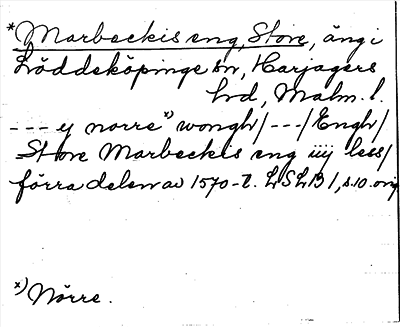 *Marbeckis eng, Store, äng i
Löddeköpinge sn, Harjagers
hd, Malm. l.
--- y norre x) wongh/---/Engh/
Store Marbeckis eng iiij less/
förra delen av 1570-t. LSLB1, s.10. orig
x) Nörre.